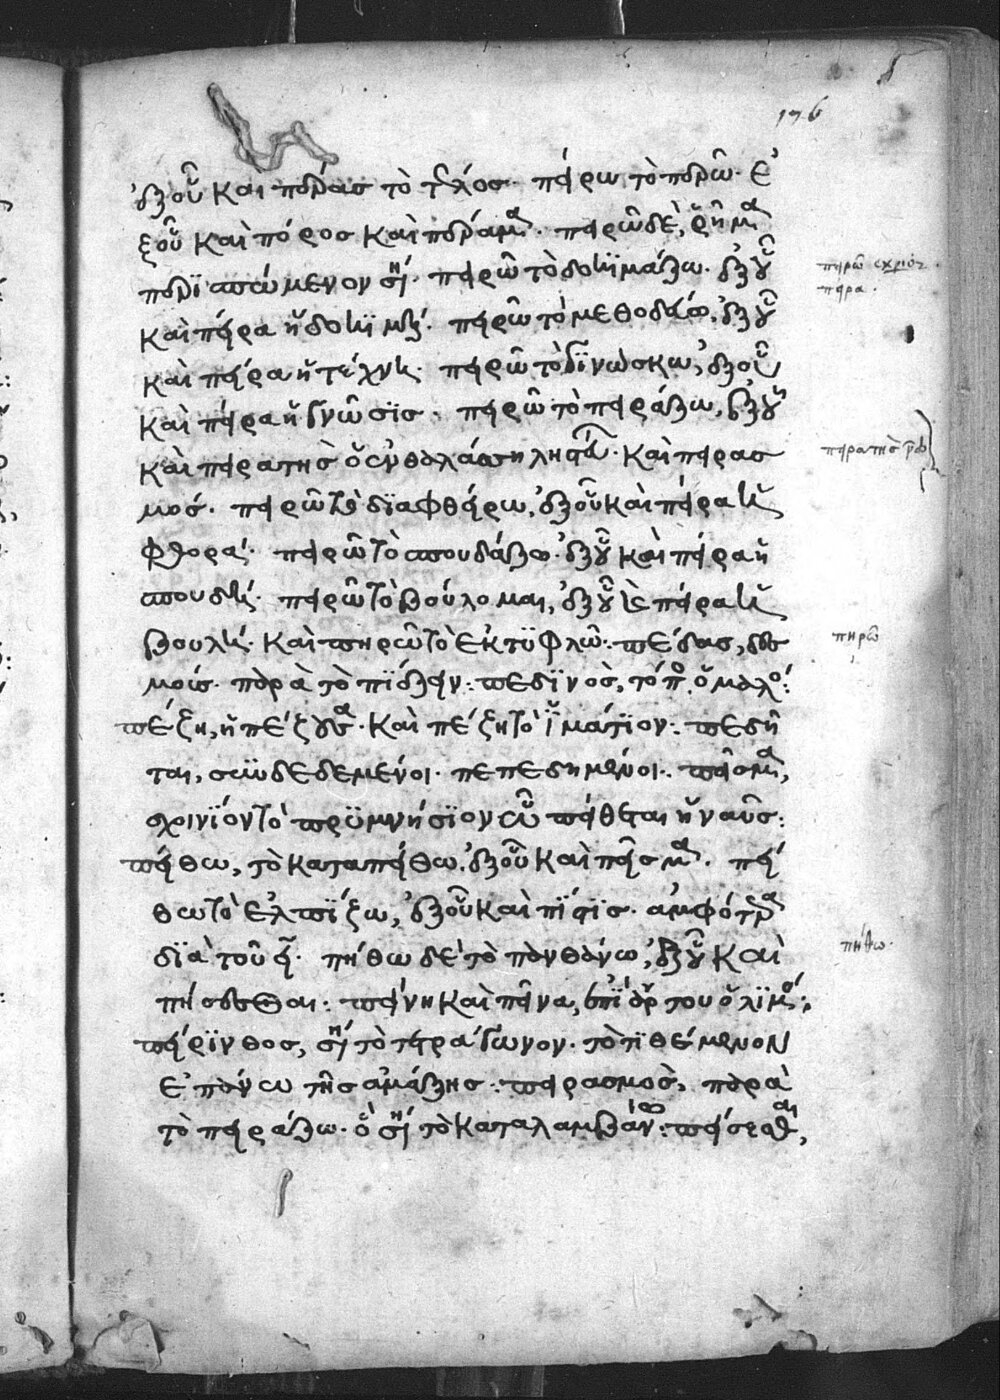 176
ἐξ οὗ καὶ πέρας τὸ τέλος· πείρω τὸ περῶ· ἐ
ξοῦ καὶ πόρος καὶ πέραμα· πειρῶ δὲ, ῥῆμα
περισπώμενον σημαίνει· πειρῶ τὸ δοκιμάζω· ἐξ οὗ
καὶ πεῖρα ἡ δοκιμή· πειρῶ τὸ μεθοδεύω, ἐξ οὗ
καὶ πεῖρα ἡ τέχνη· πειρῶ τὸ γινώσκω, ἐξ οὗ
καὶ πεῖρα ἡ γνῶσις· πειρῶ τὸ πειράζω, ἐξ οὗ
καὶ πειρατὴς ὁ ἐν θαλάσσῃ ληστής· καὶ πειρασ
μός· πειρῶ τὸ διαφθείρω, ἐξ οὗ καὶ πεῖρα ἡ
φθορά· πειρῶ τὸ σπουδάζω· ἐξ οὗ καὶ πεῖρα ἡ
σπουδή· πειρῶ τὸ βούλομαι, ἐξ οὗ καὶ πεῖρα ἡ
βουλή· καὶ πηρῶ τὸ ἐκτυφλῶ· πέδας, δεσ
μοίς· παρὰ τὸ πιέζειν: πεδινὸς, τόπος ὁμαλός:
πέζη, ἡ πέζουσα· καὶ πέζη τὸ ἱμάτιον: πεδῆ
ται, συνδεδεμένοι· πεπεδημένοι: πεῖσμα,
σχινίον τὸ πρυμνήσιον ᾧ πείθεται ἡ ναῦς:
πείθω, τὸ καταπείθω· ἐξ οὗ καὶ πεῖσμα· πεί
θω τὸ ἐλπίζω, ἐξ οὗ καὶ πίστις· ἀμφότερα
διὰ τοῦ ει· πήθω δὲ τὸ πενθάνω, ἐξ οὗ καὶ
πήσεσθαι: πείνη καὶ πεῖνα, ἐπειδὰν του ὁ λιμός:
πείρινθος, σημαίνει τὸ τετράγωνον· τὸ τιθέμενον
ἐπάνω τῆς ἀμάξης: πειρασμὸς, παρὰ
τὸ πειράζω· ὃ σημαίνει τὸ καταλαμβάνειν: πείσεσθαι,
πειρῶ
πεῖρα·
πειρατής
πηρῶ
πήθω·